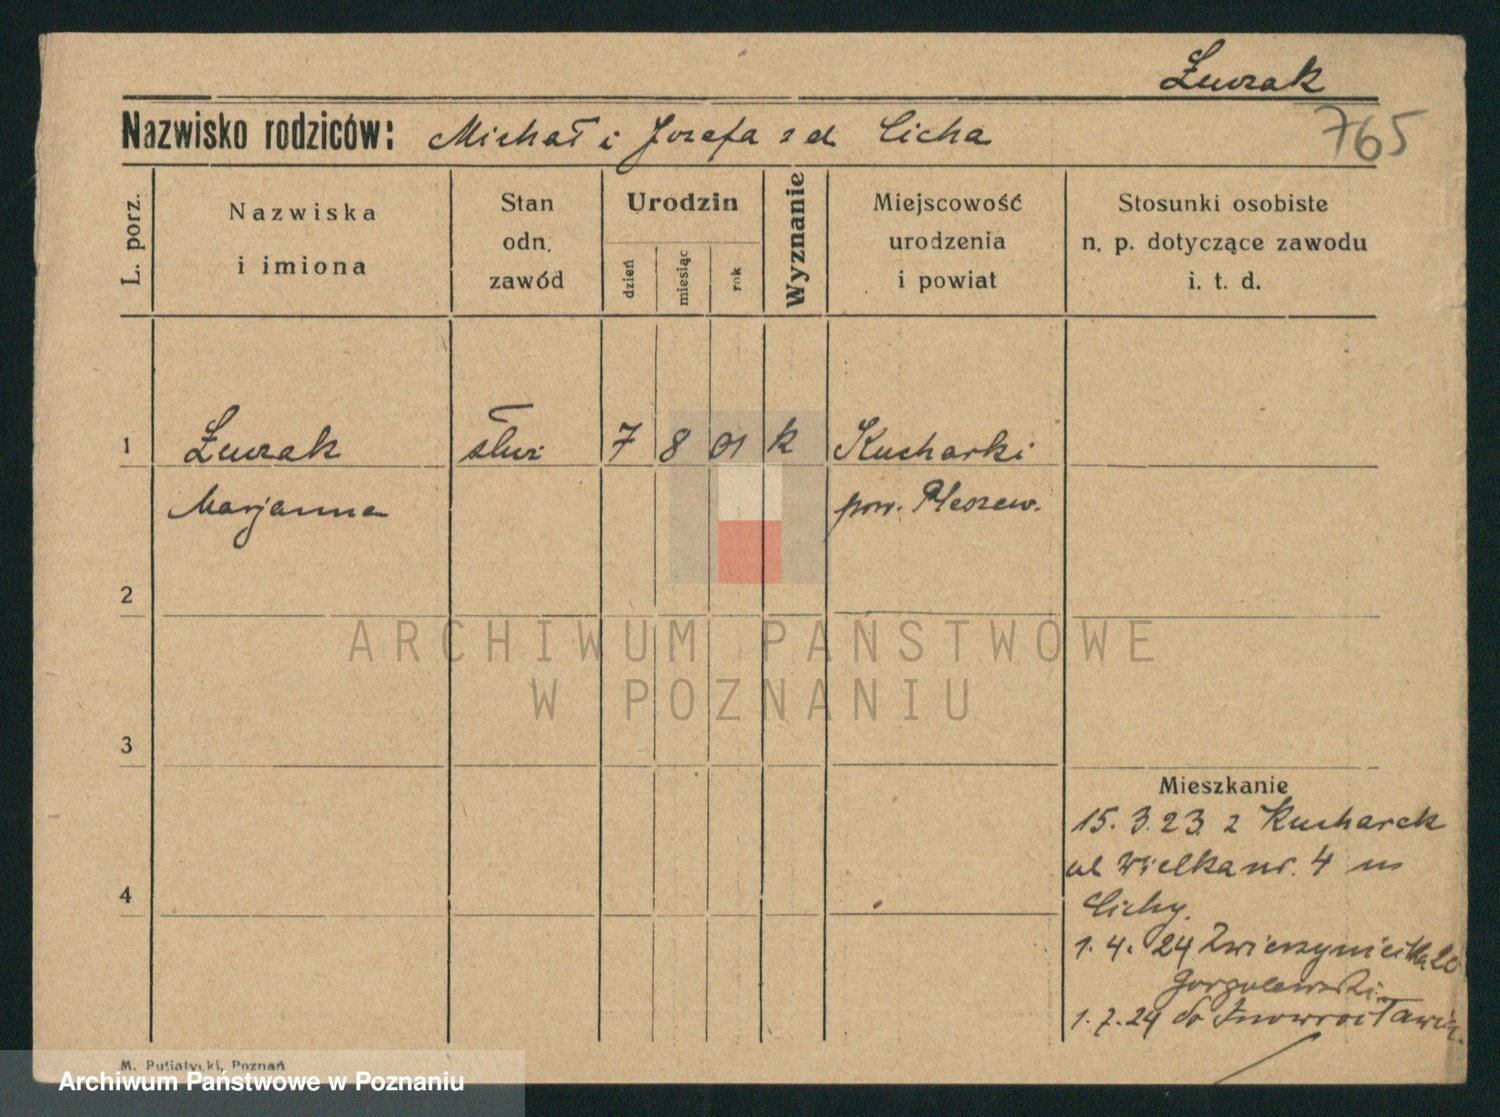 Żurzak
765
Nazwisko rodziców: Michał i Jozefa z d Cicha
L. porz.
Nazwiska
i imiona
Stan
odn.
zawód
Urodzin
dzień
miesiąc
rok
Wyznanie
Miejscowość
urodzenia
i powiat
Stosunki osobiste
n. p. dotyczące zawodu
i. t. d.
1 Żurzak służ 7 8 01 k Kucharki
Marjanna pow. Pleszew.
2
ARCHIWUM PAŃSTWOWE
W POZNANIU
3
Mieszkanie
15. 3. 23. z Kucharek
ul Wielka nr. 4 m
4
Cichy.
1. 4. 24 Zwierzyniecka 20
Gorgolewski.
1. 7. 24 do Inowrocławia.
M. Putiatycki, Poznań
Archiwum Państwowe w Poznaniu